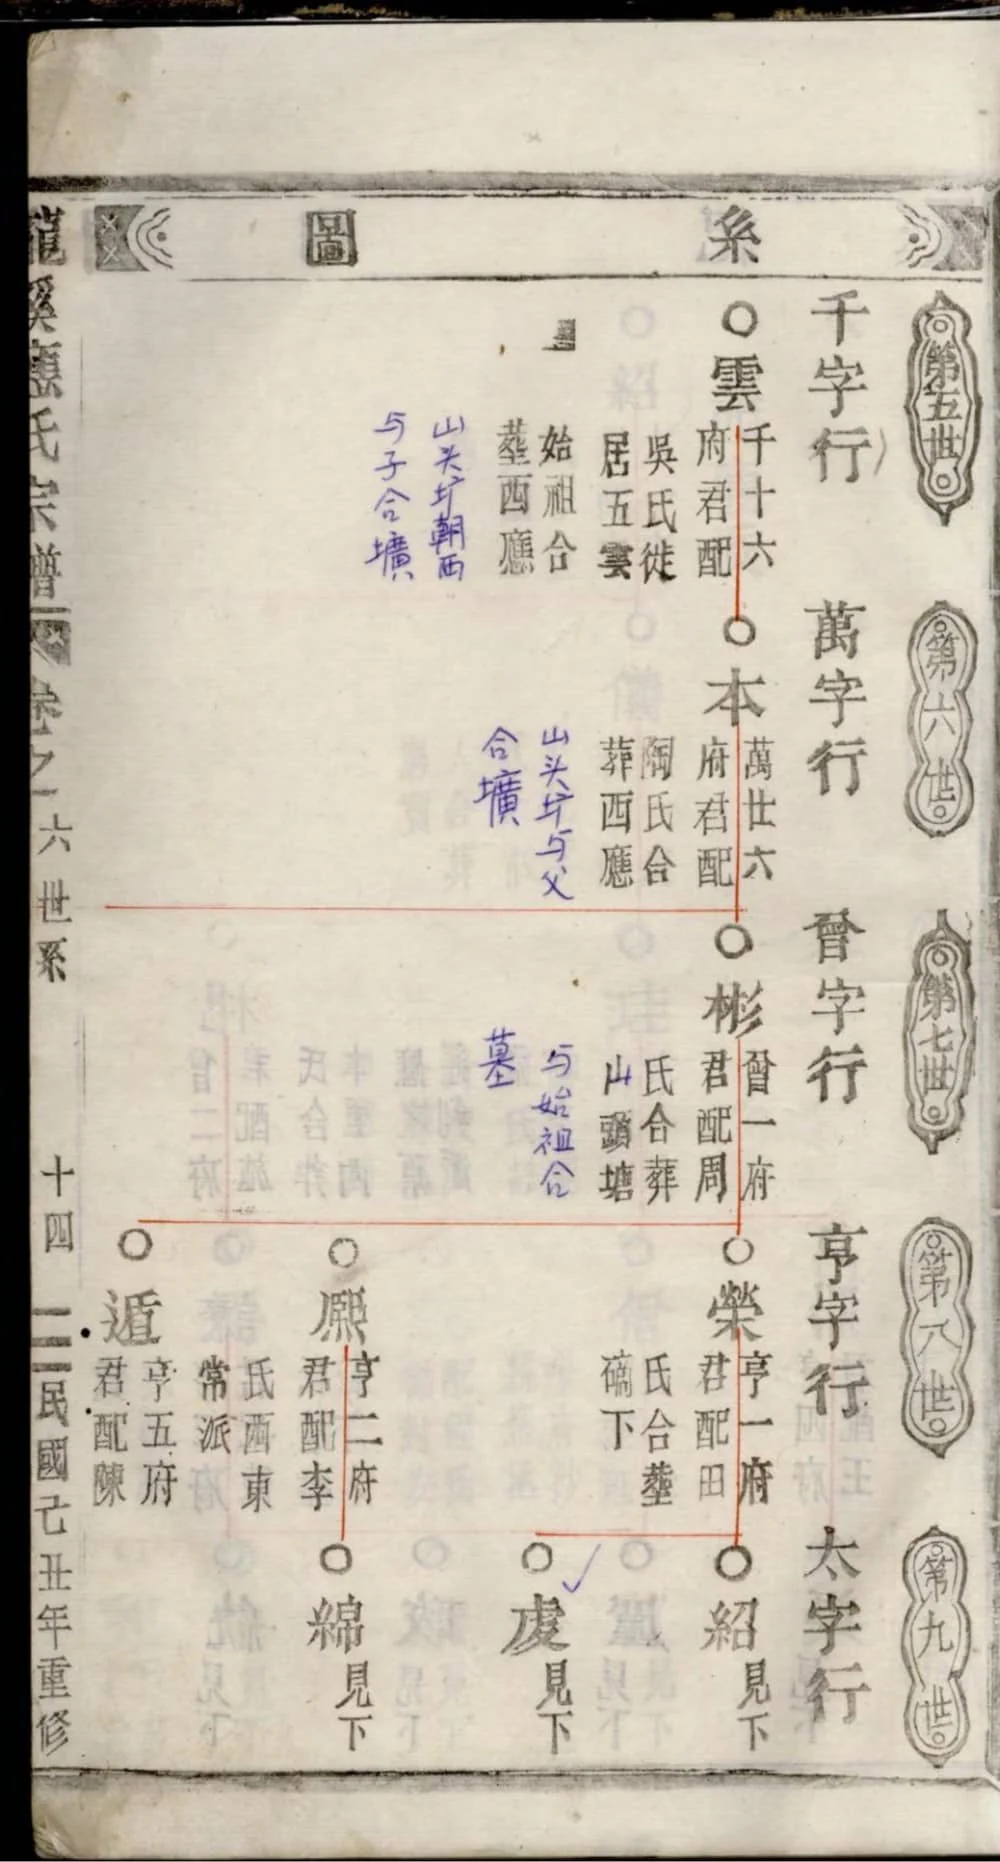 系圖
第五世
千字行
雲
千十六
府君配
吳氏徙
居五雲
始祖合
塟西應
山头圹朝西
与子合壙
第六世
萬字行
本
萬廿六
府君配
陶氏合
葬西應
山头圹与父
合壙
第七世
曾字行
彬
曾一府
君配周
氏合葬
山頭塘
与始祖合
墓
第八世
亨字行
榮
亨一府
君配田
氏合塟
碻下
熙
亨二府
君配李
氏西東
常派
遁
亨五府
君配陳
第九世
太字行
紹
見下
虔
見下
綿
見下
龍溪應氏宗譜
卷之一六世系
十四
民國己丑年重修